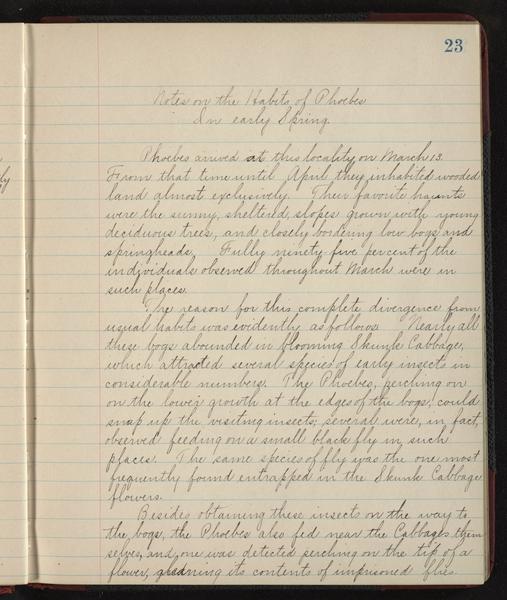 23
Notes on the Habits of Phoebes
In early Spring.
Phoebes arrived at this locality on March 13.
From that time until April they inhabited wooded
land almost exclusively. Their favorite haunts
were the sunny, sheltered, slopes grown with young
deciduous trees, and closely bordering low bogs and
springheads. Fully ninety-five percent of the
individuals observed throughout March were in
such places.
The reason for this complete divergence from
usual habits was evidently as follows. Nearly all
these bogs abounded in blooming Skunk Cabbage,
which attracted several species of early insects in
considerable numbers. The Phoebes, perching on
on the lower growth at the edges of the bogs, could
snap up the visiting insects; several were, in fact,
observed feeding on a small black fly in such
places. The same species of fly was the one most
frequently found entrapped in the Skunk Cabbage
flowers.
Besides obtaining these insects on the way to
the bogs, the Phoebes also fed near the Cabbages them
selves, and one was detected perching on the tip of a
flower, gleaning its contents of imprisoned flies.